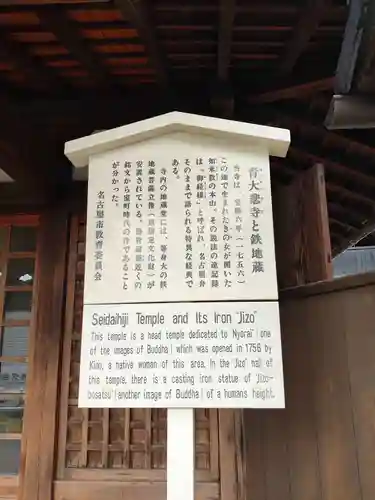 青大悲寺と鉄地蔵
当寺は、宝暦六年(一七五六)
この地で生まれたきの女が開いた
如来教の本山。その説法の速記録
は「御経様」と呼ばれ、名古屋弁
そのままで語られる特異な経典で
ある。
寺内の地蔵堂には、等身大の鉄
地蔵菩薩立像(県指定文化財)が
安置されている。
銘文から室町時代の作であること
が分かった。
名古屋市教育委員会
Seidaihiji Temple and Its Iron "Jizo"
This temple is a head temple dedicated to Nyorai (one
of the images of Buddha) which was opened in 1756 by
Kino, a native woman of this area. In the "Jizo" hall of
this temple, there is a casting iron statue of "Jizo-
bosatsu" (another image of Buddha) of a humans height.